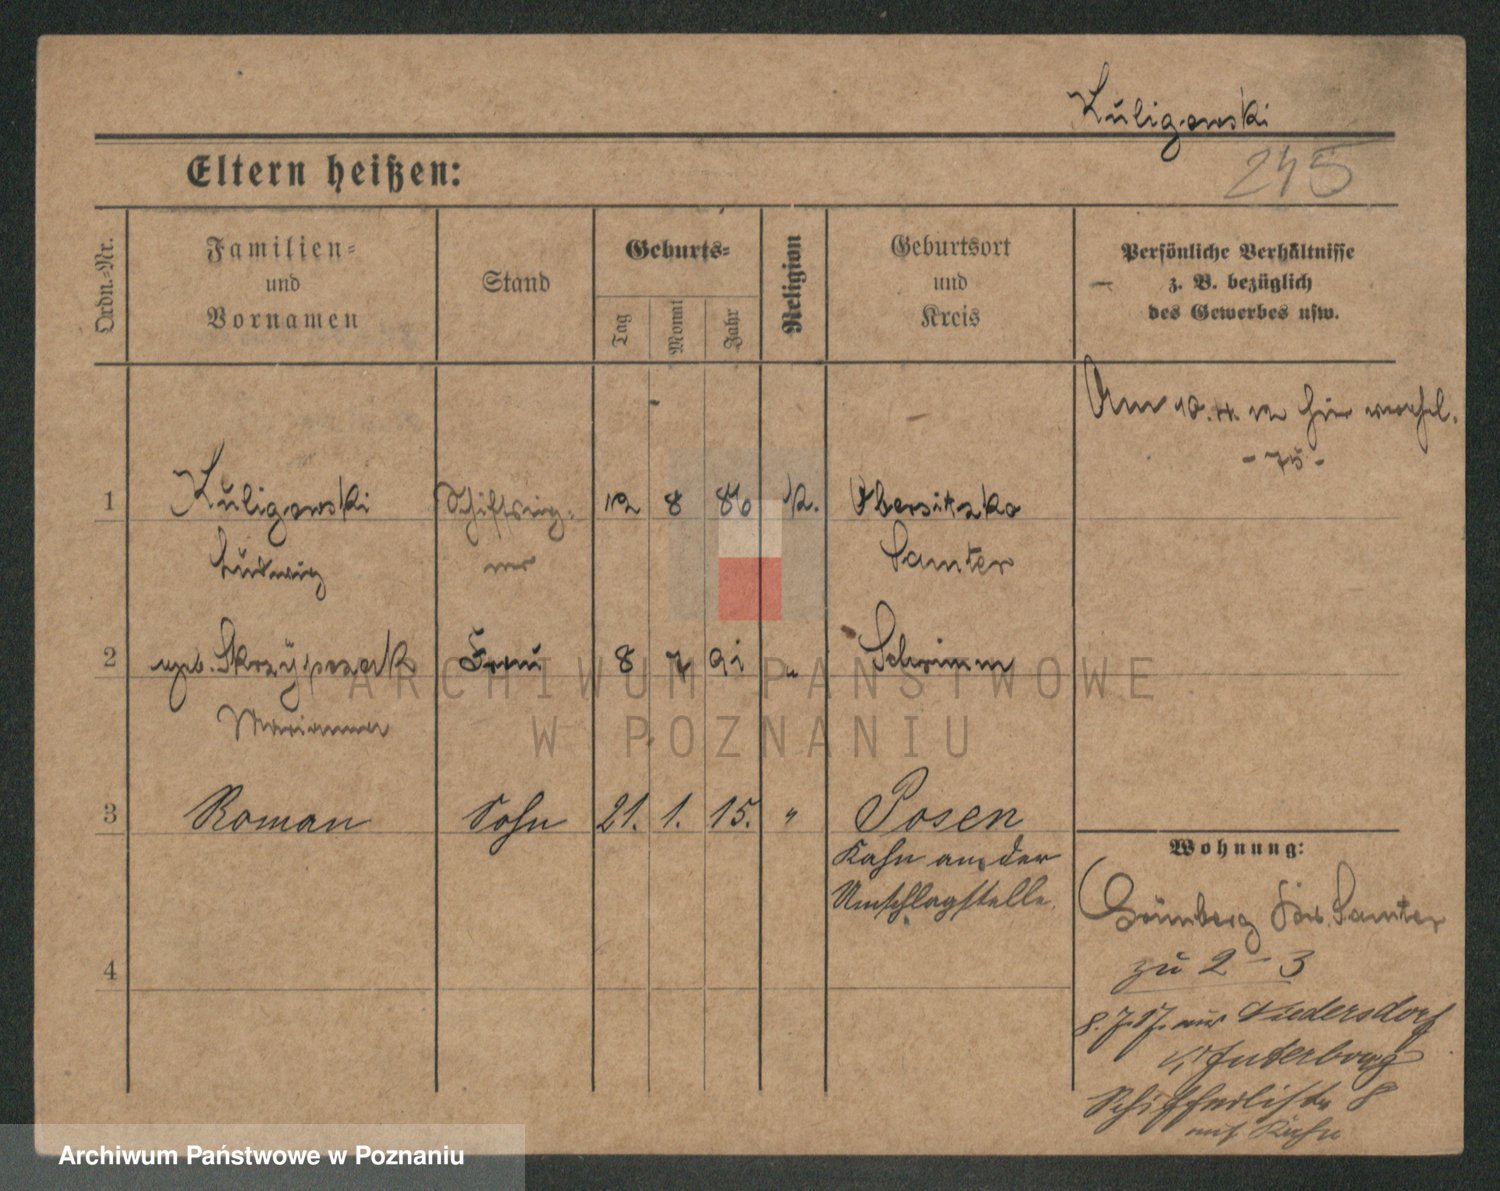 Kuligowski
245
Eltern heißen:
Ordn.-Nr.
Familien- und Vornamen
Stand
Geburts-
Tag
Monat
Jahr
Religion
Geburtsort und Kreis
Persönliche Verhältnisse z. B. bezüglich des Gewerbes usw.
Am 10. 4. 12 hier
1 Kuligowski 12 8 86 K. Obersitzko
Ludwig Samter
2 geb. Skrzypczak Frau 8 7 91 " Schrimm
Marianna
3 Roman Sohn 21. 1. 15. " Posen
Kahn an der
Umschlagstelle.
4
Wohnung:
Samter
zu 2-3
8. 7. 17. aus
Schifferliste 8
ARCHIWUM PAŃSTWOWE
W POZNANIU
Archiwum Państwowe w Poznaniu